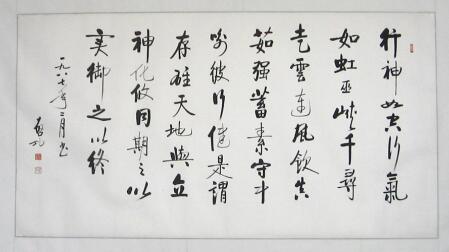 行神如空行氣
如虹巫峽千尋
走雲連風飲真
茹强蓄素守中
喻彼行健是謂
存雄天地與立
神化攸同期之以
实御之以終
一九八七年二月书
启功